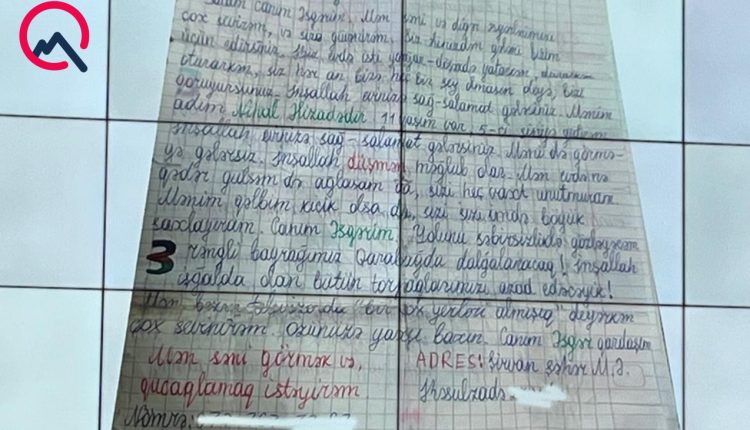 Salam Canım Əsgərim. Mən səni və digər əsgərlərimizi
çox sevirəm, və sizə güvənirəm. Siz
üçün edirsiniz. Biz evdə isti yorğan-döşəkdə yatarkən,
oturarkən, siz hər an bizə heç bir şey olmasın deyə, bizi
qoruyursunuz. İnşallah evinizə sağ-salamat gələrsiniz. Mənim
adım Nihal Hizadədir. 11 yaşım var, 5-ci sinifə gedirəm
İnşallah evinizə sağ-salamat gələrsiniz. Məni də görmə-
yə gələrsiz. İnşallah düşmən məğlub olar. Mən evdə nə
qədər gülsəm də ağlasam da, sizi heç vaxt unutmuram.
Mənim qəlbim kiçik olsa da, sizi içimdə böyük
saxlayıram. Canım Əsgərim. Yolunu səbirsizliklə gözləyirəm
3 rəngli bayrağımız Qarabağda dalğalanacaq! İnşallah
işğalda olan bütün torpaqlarımızı azad edəcəyik!
Mən bəzən televizorda "bir çox yerləri almışıq" deyərkən
çox sevinirəm. Özünüzə yaxşı baxın. Canım Əsgər qardaşım
Mən səni görmək və
qucaqlamaq istəyirəm
ADRES: Şirvan şəhər M.Ə.
Rəsulzadə
Nömrə: